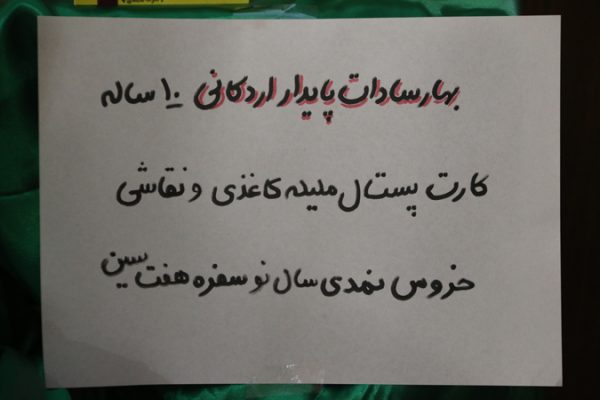 بهار سادات پایدار اردکانی ۱۰ ساله
کارت پستال ملیله کاغذی و نقاشی
خروس نمدی سال نو سفره هفت سین